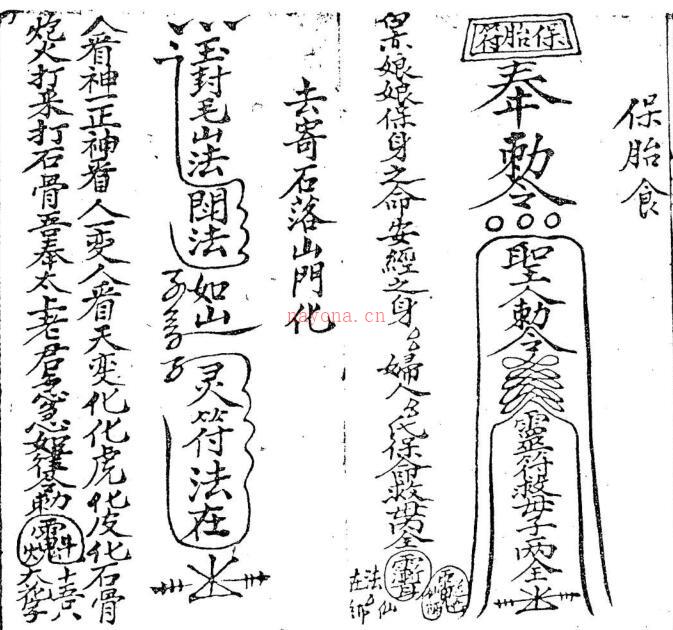 保胎食
保胎符
奉勅令
聖人勅令
靈符救母子兩全
娘娘保身之命安經之身
婦人 氏保命救萬全
在法
去寄石落山門化
玉封毛山法
閗法
如山
灵符法在
人看神一正神看人一变人看天变化化虎化皮化石骨
炮火打来打石骨吾奉太上老君急急如律令勅
nayona.cn